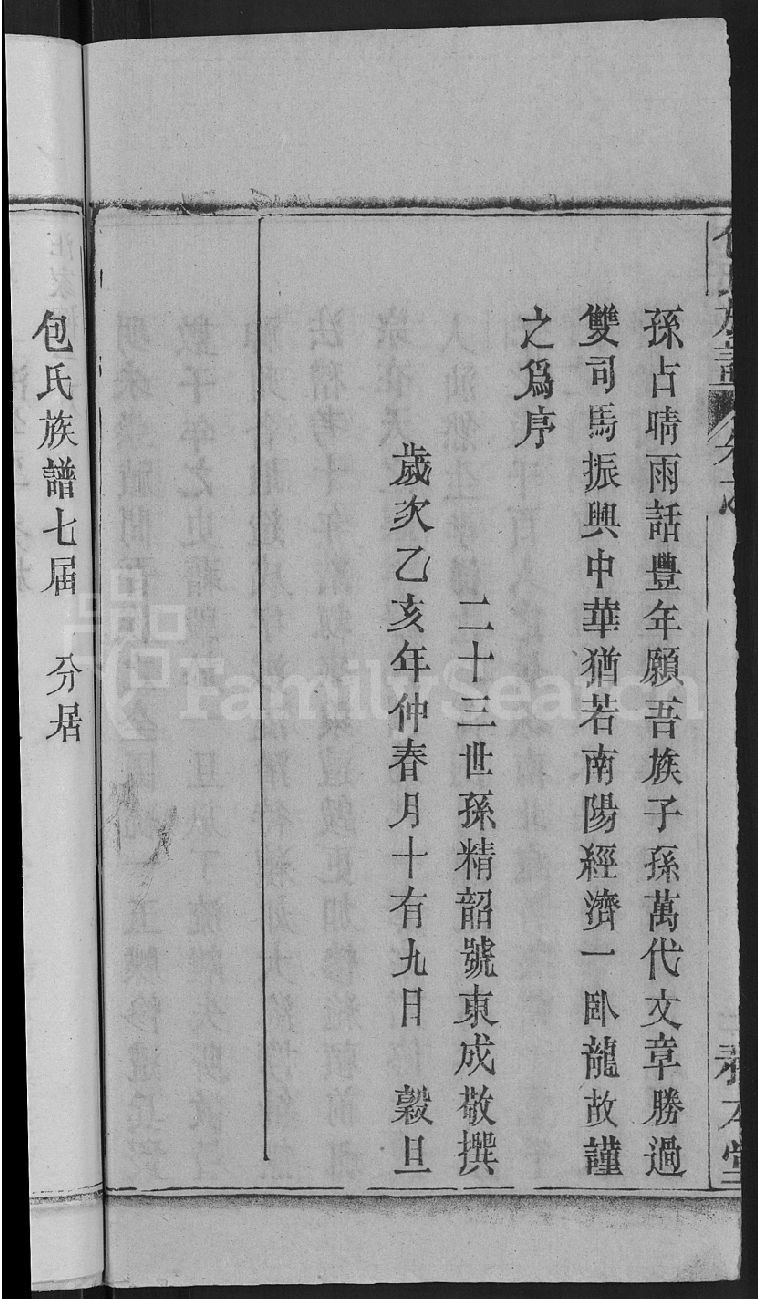 孫占晴雨話豐年願吾族子孫萬代文章勝過
雙司馬振興中華猶若南陽經濟一臥龍故謹
之爲序
二十三世孫精韶號東成敬撰
歲次乙亥年仲春月十有九日 穀旦
包氏族譜七届 分居
FamilySearch